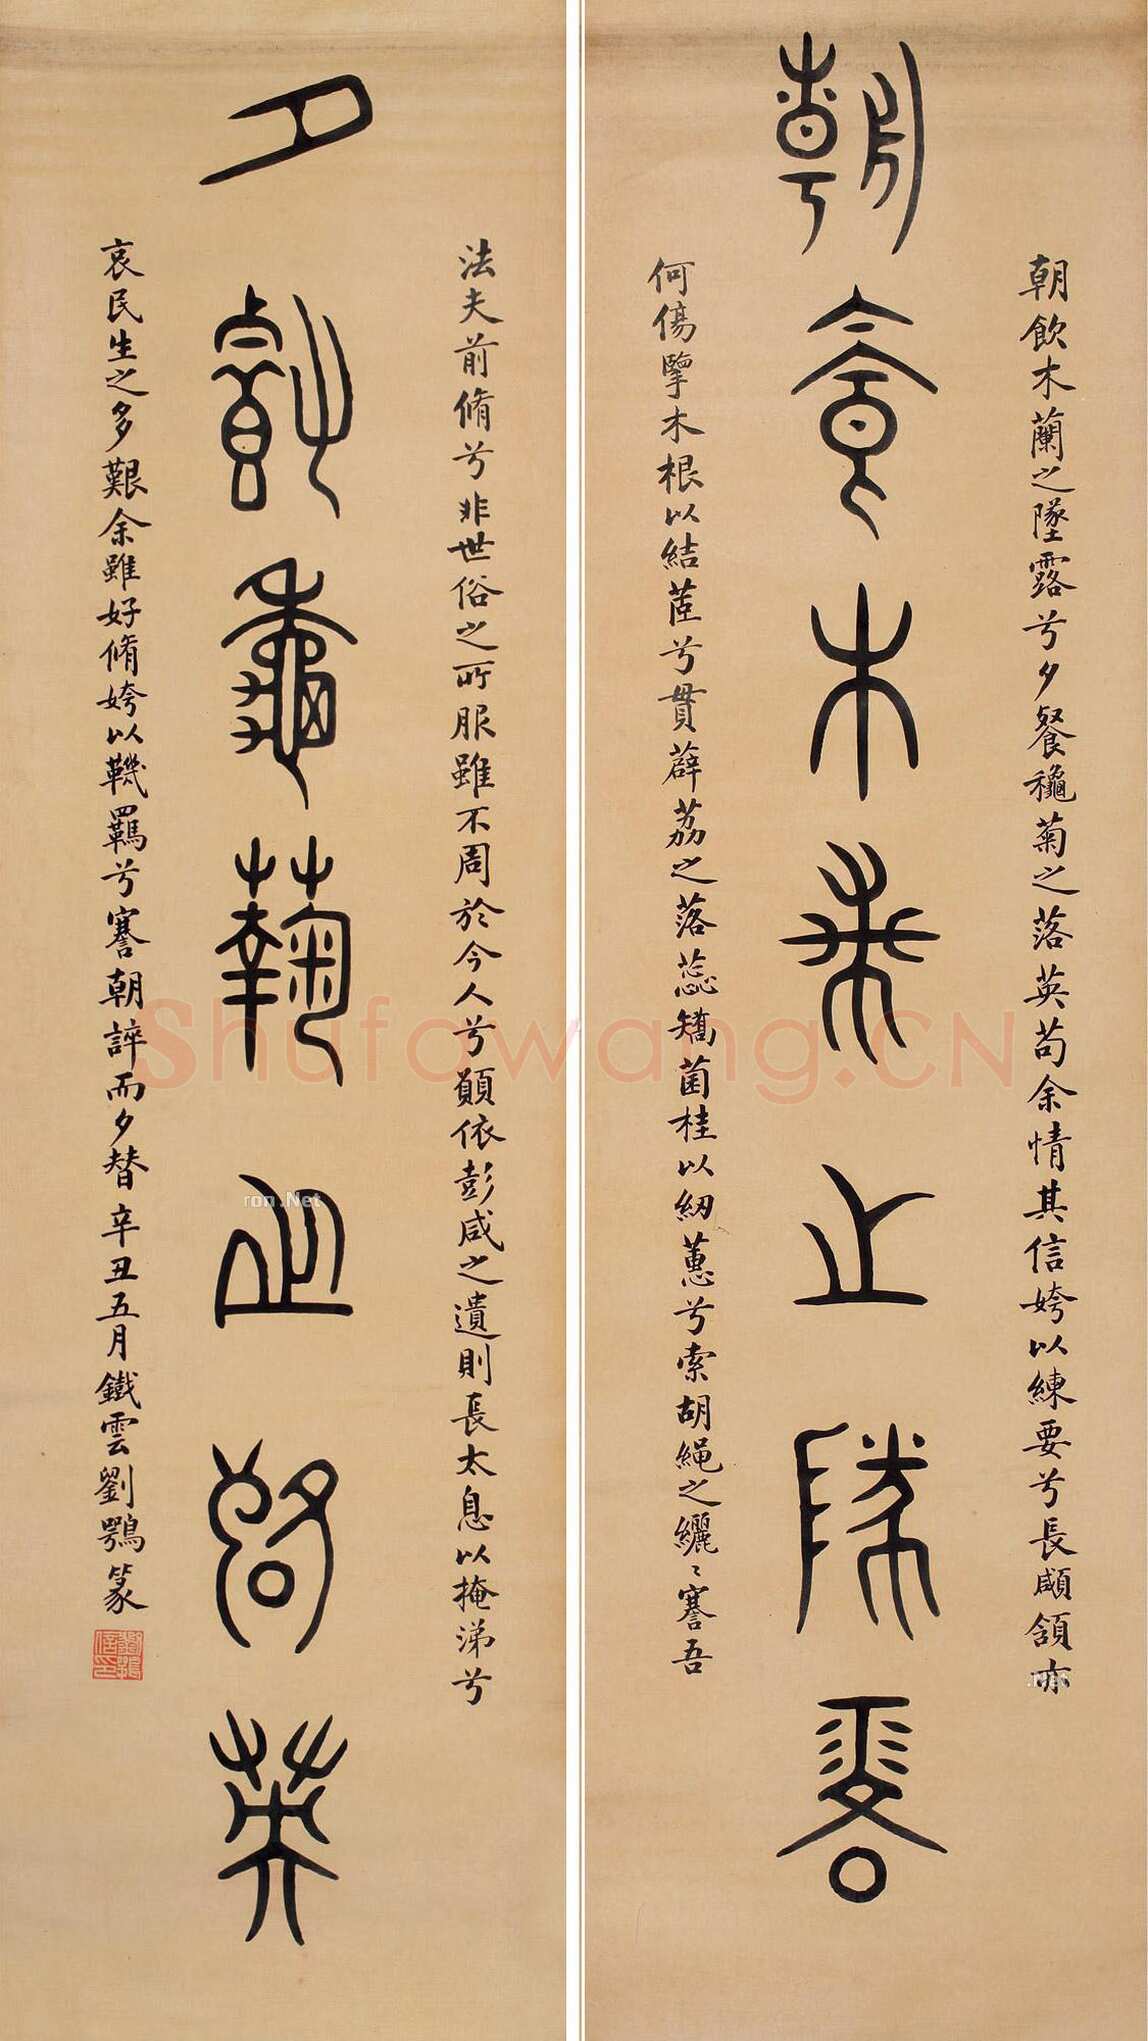 朝飲木蘭之墜露
朝飲木蘭之墜露兮夕餐龝菊之落英苟余情其信姱以練要兮長顑頷亦
何傷擥木根以結茝兮貫薜荔之落蕊矯菌桂以紉蕙兮索胡繩之纚〻謇吾
夕餐秋菊之落英
法夫前脩兮非世俗之所服雖不周於今人兮願依彭咸之遺則長太息以掩涕兮
哀民生之多艱余雖好脩姱以鞿羈兮謇朝誶而夕替 辛丑五月鐵雲劉鶚篆
Shufawang.CN
ron .Net
.Net